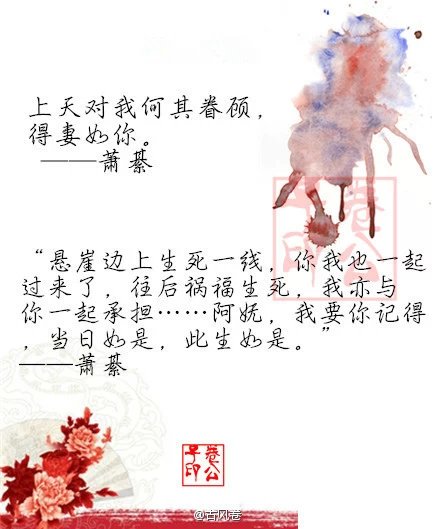 上天对我何其眷顾，
得妻如你。
——萧綦
“悬崖边上生死一线，你我也一起
过来了，往后祸福生死，我亦与
你一起承担……阿妩，我要你记得
，当日如是，此生如是。”
——萧綦
卷公
子印
卷公
子印
@古风卷